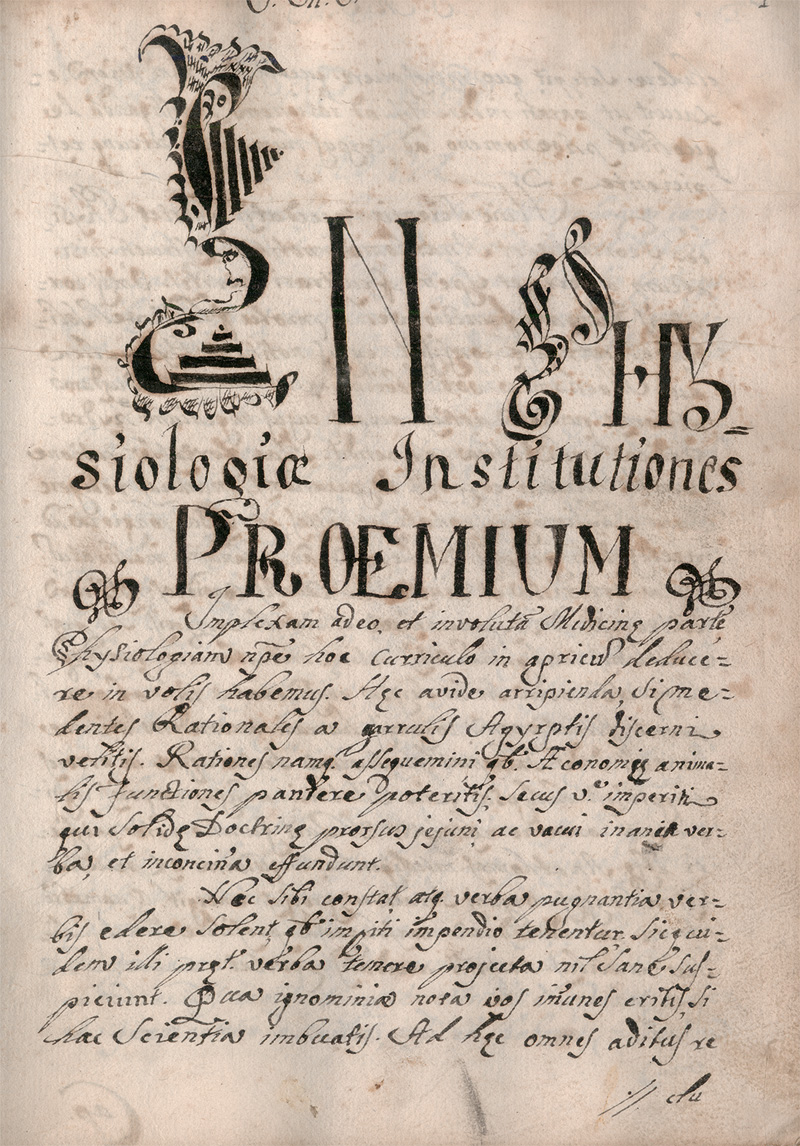 IN PHY=
siologiæ Institutiones
PROEMIUM
Implexam adeo, et involutã Medicinę partẽ
Physiologiam npẽ hoc Curriculo in apricũ deduce=
re in votis habemus. Hęc avide arripienda, Si me=
dentes Rationales a garrulis Agyrptis discerni
velitis. Rationes namq. assequemini qb. Æconomię anima=
lis functiones pandere poteritis, Secus v.º imperiti
qui Solidę Doctrinę prorsus jejuni, ac vacui inania ver=
ba, et inconcina effundunt.
Nec sibi constat, atq. verba pugnantia ver=
bis edere Solent, qb. impliti impendio tenentur. Siqui=
dem illi pręt. verba temere projecta nil Sane Sus=
piciunt. Qua ignominiæ nota vos imunes eritis, Si
hac Scientia imbuatis. Ad hęc omnes aditus re
// clu